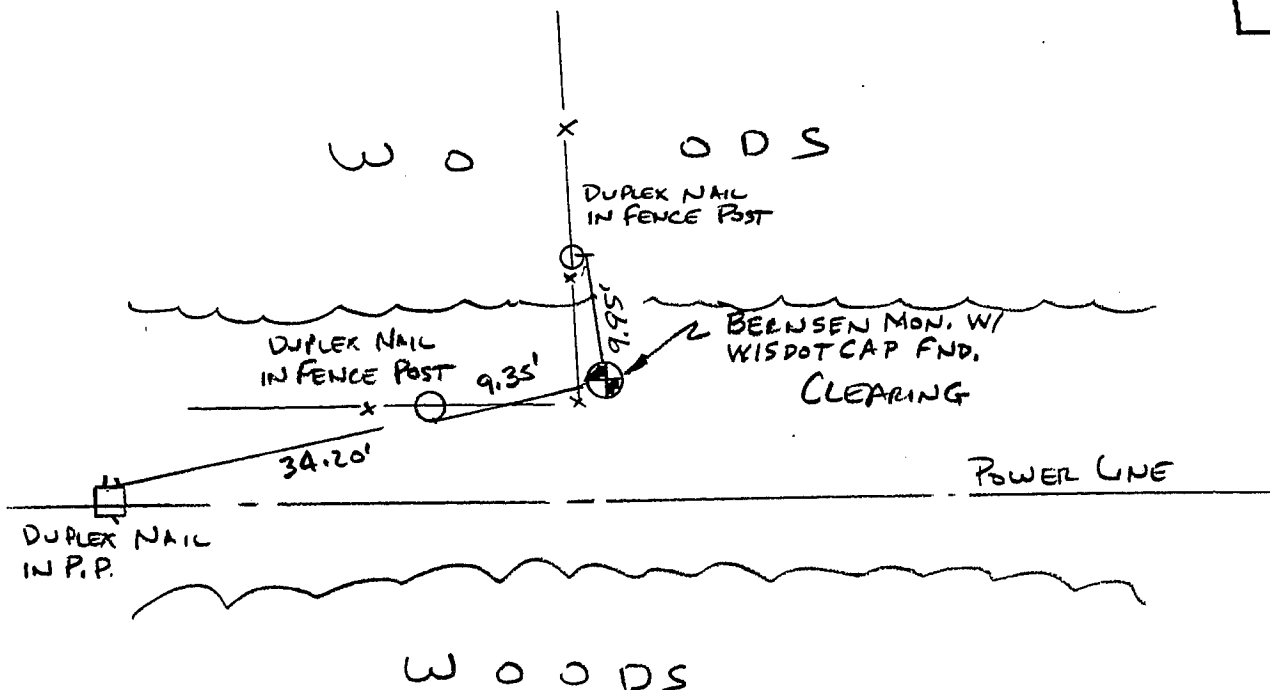 WOODS
DUPLEX NAIL
IN FENCE POST
9.95'
BERNSEN MON. W/
WISDOT CAP FND.
CLEARING
DUPLEX NAIL
IN FENCE POST
9.35'
34.20'
POWER LINE
DUPLEX NAIL
IN P.P.
WOODS